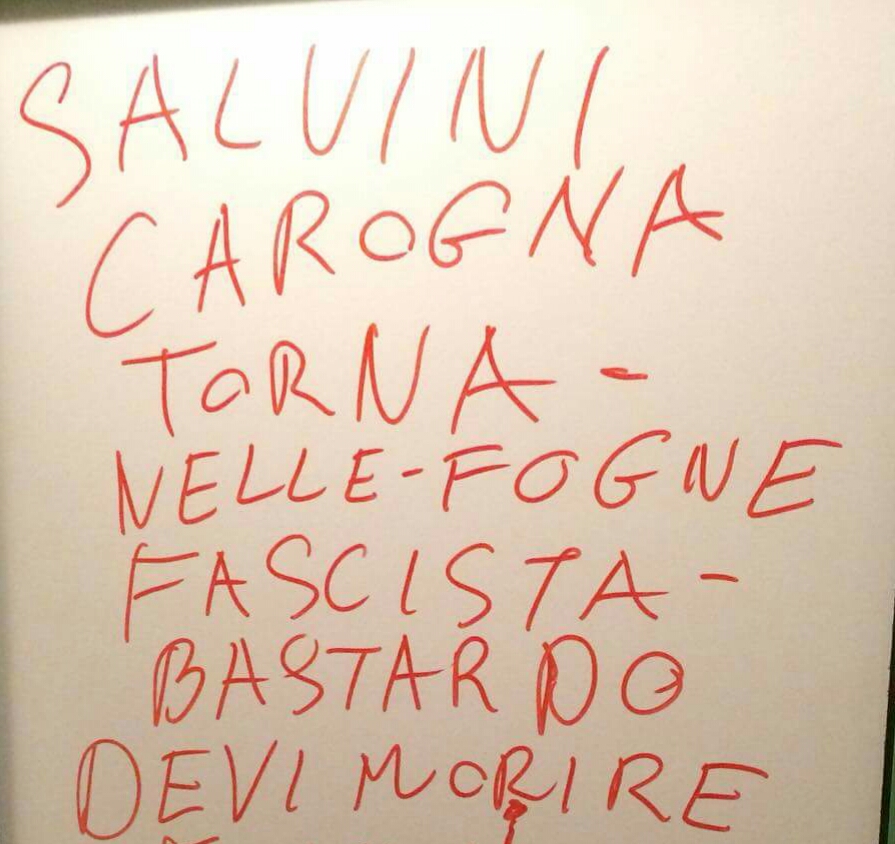 SALVINI
CAROGNA
TORNA -
NELLE-FOGNE
FASCISTA-
BASTARDO
DEVI MORIRE